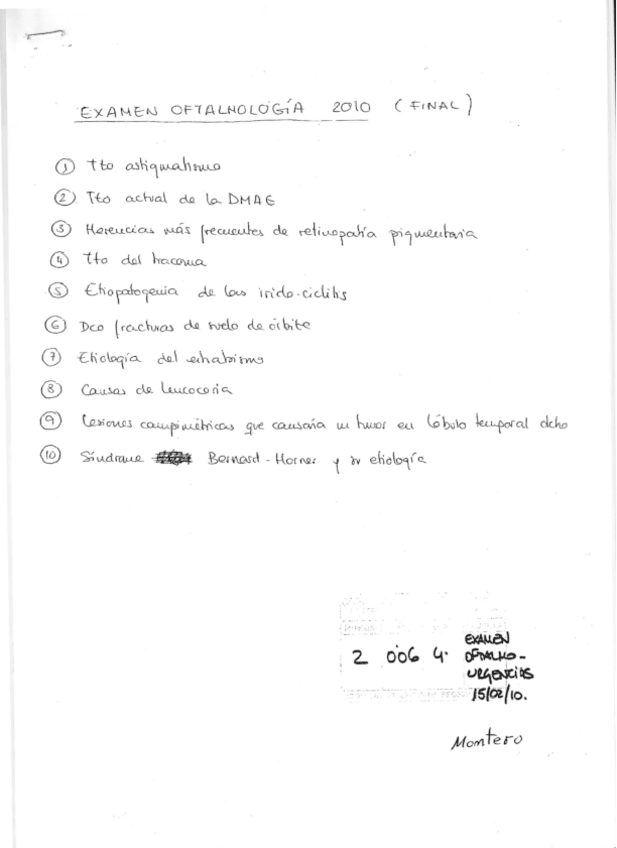 EXAMEN OFTALMOLOGÍA 2010 (FINAL)
1 Tto astigmatismo
2 Tto actual de la DMAE
3 Herencias más frecuentes de retinopatía pigmentaria
4 Tto del tracoma
5 Etiopatogenia de las irido-ciclitis
6 Dco fracturas de suelo de órbita
7 Etiología del estrabismo
8 Causas de leucocoria
9 Lesiones campimétricas que causaría un tumor en lóbulo temporal dcho
10 Síndrome Bernard-Horner y su etiología
2 006 4.
EXAMEN
OFTALMO-
URGENCIAS
15/02/10.
Montero